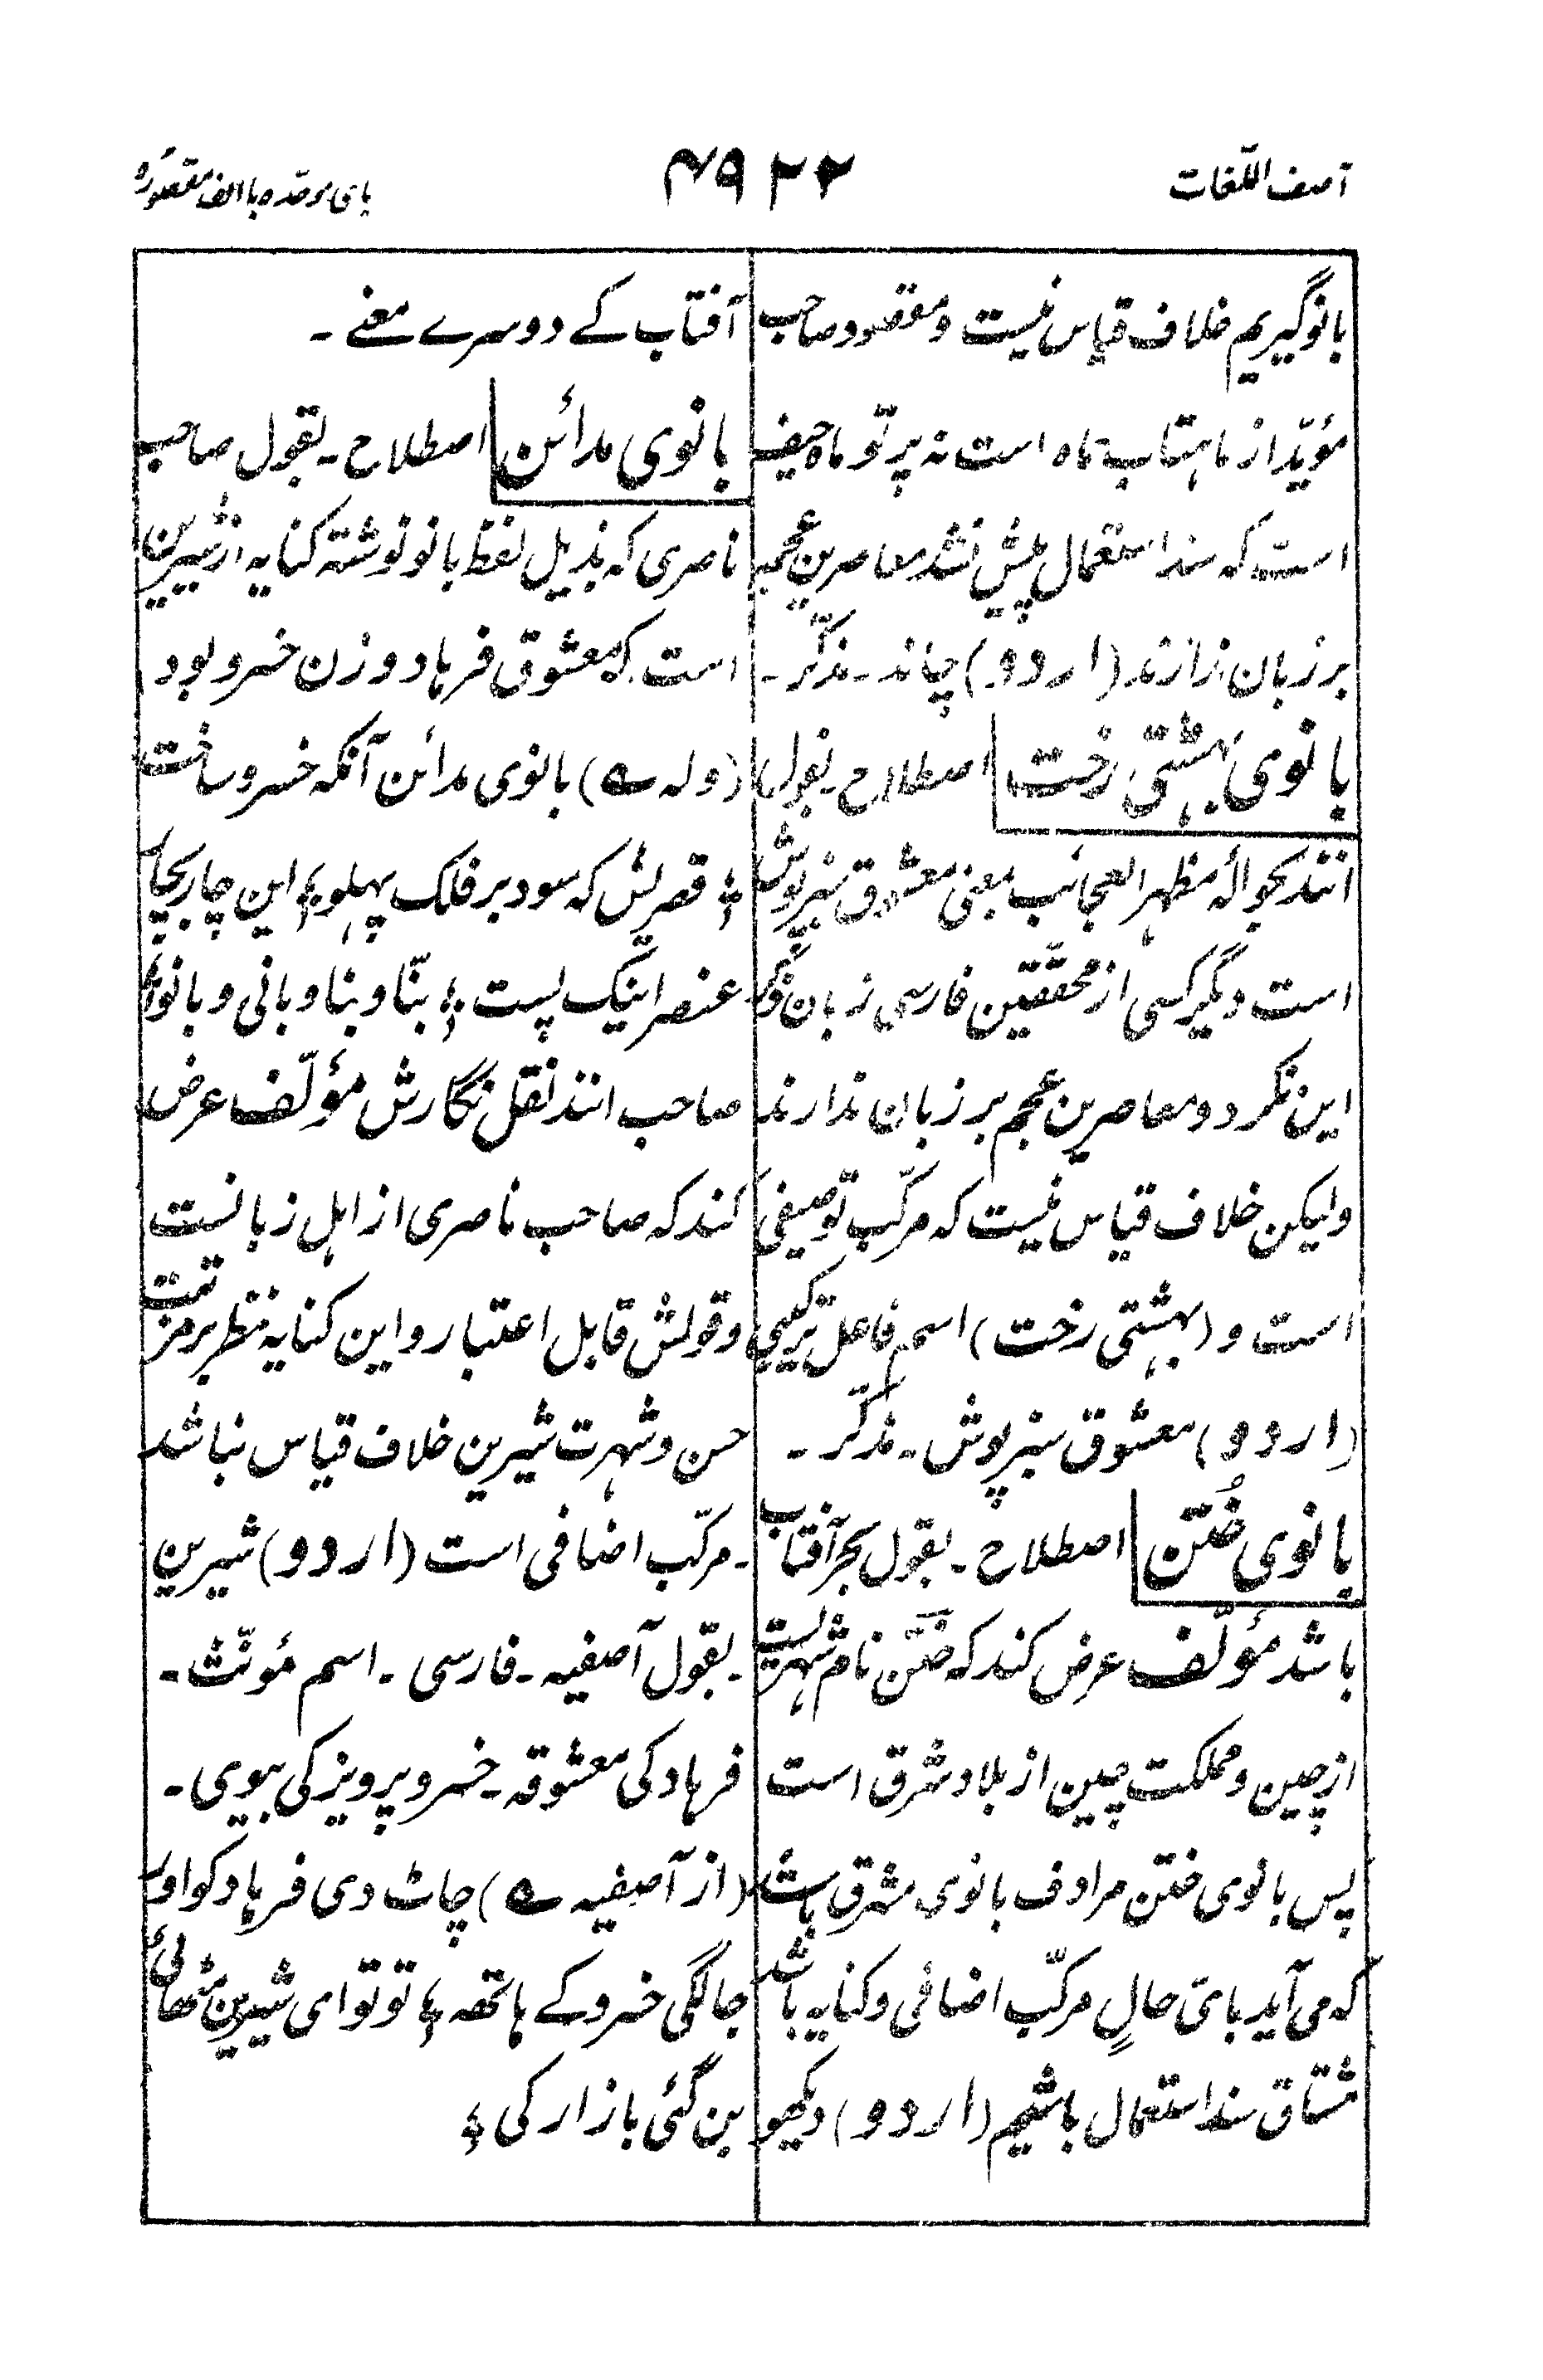 آصف اللّغات
۴۹۲۲
بای موحّدہ با الف مقصورہ
بانو گیریم خلاف قیاس نیست و مقصود صاحب
مؤیّد از ماہتاب ماہ است نہ پرتو ماہ حیف
است کہ سند استعمال پیش نشد معاصرین عجم
بر زبان ندارند (اردو) چاند ۔ مذکّر ۔
بانوی بہشتی رخت اصطلاح ۔ بقول
انند بحوالۂ مظہر العجائب بمعنی معشوق سبز پوش
است دیگر کسی از محققین فارسی زبان ذکر
این نکرد و معاصرین عجم بر زبان ندارند
ولیکن خلاف قیاس نیست کہ مرکّب توصیفی
است و (بہشتی رخت) اسم فاعل ترکیبی
(اردو) معشوق سبز پوش ۔ مذکّر ۔
بانوی خُتن اصطلاح ۔ بقول بحر آفتاب
باشد مؤلّف عرض کند کہ ختن نام شہریست
از چین و مملکت چین از بلاد شرق است
پس بانوی ختن مرادف بانوی مشرق باشد
کہ می آید بای حالٍ مرکّب اضافی و کنایہ باشد
مشتاق سند استعمال باشیم (اردو) دیکھو
آفتاب کے دوسرے معنے ۔
بانوی مدائن اصطلاح ۔ بقول صاحب
ناصری کہ بذیل لفظ بانو نوشتہ کنایہ از شیرین
است کہ معشوق فرہاد و زن خسرو بود
(ولہ ؎) بانوی مدائن آنکہ خسرو ساخت
؛ قصریش کہ سود بر فلک پہلو ؛ این چار بجای
عنصر اینک پست ؛ بنّا و بنا و بانی و بانو ؛
صاحب انند نقل نگارش مؤلّف عرض
کند کہ صاحب ناصری از اہل زبانست
و قولش قابل اعتبار و این کنایہ نظر بر مزیّت
حسن و شہرت شیرین خلاف قیاس نباشد
۔ مرکّب اضافی است (اردو) شیرین
۔ بقول آصفیہ ۔ فارسی ۔ اسم مؤنّث ۔
فرہاد کی معشوقہ ۔ خسرو پرویز کی بیوی ۔
(از آصفیہ ؎) چاٹ دی فرہاد کو اور
جا لگی خسرو کے ہاتھہ ؛ تو تو ای شیرین مٹھائی
بن گئی بازار کی ؛